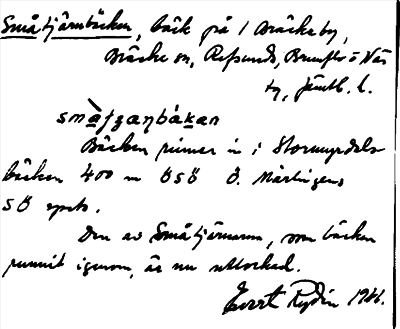 Småtjärnbäcken, bäck på / Bräcke by,
Bräcke sn, Refsunds, Brunflo o Näs
tg, Jämtl. l.
småtʒaɳbäkan
Bäcken rinner in i Stormyrdals
bäcken 400 m ÖSÖ Ö. Mårtingens
SÖ spets.
Den av Småtjärnarna, som bäcken
runnit igenom, är nu uttorkad.
Evert Rydin 1946.